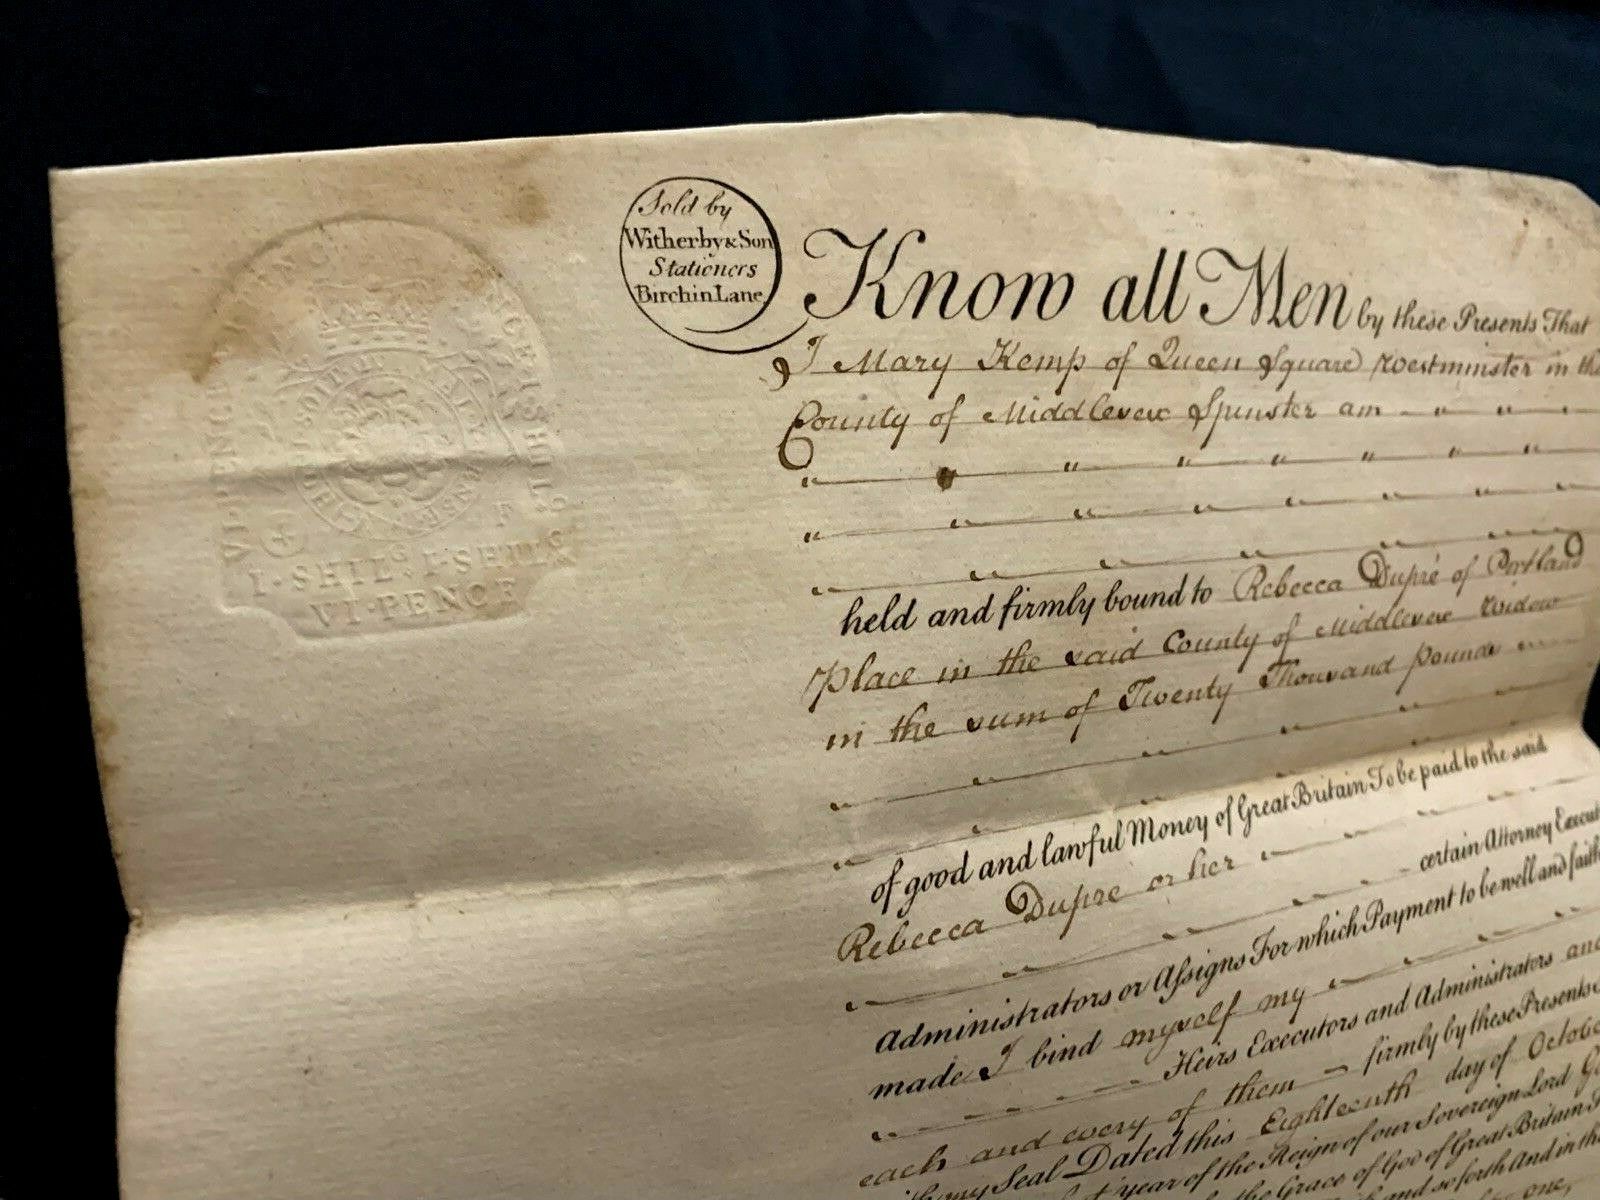 VI·PENCE
I·SHIL^G I·SHIL^G
VI·PENCE
HONI SOIT QUI MAL Y PENSE
Sold by
Witherby & Son
Stationers
Birchin Lane
Know all Men by these Presents That
I Mary Kemp of Queen Square Westminster in the
County of Middlesex Spinster am
held and firmly bound to Rebecca Dupré of Portland
Place in the said County of Middlesex Widow
in the sum of Twenty Thousand pounds
of good and lawful Money of Great Britain To be paid to the said
Rebecca Dupre or her
certain Attorney Execut
Administrators or Assigns For which Payment to be well and faith
made I bind myself my
Heirs Executors and Administrators and
each and every of them firmly by these Presents
my Seal Dated this Eighteenth day of Octobe
year of the Reign of our Sovereign Lord Ge
the Grace of God of Great Britain
and so forth And in the
one,